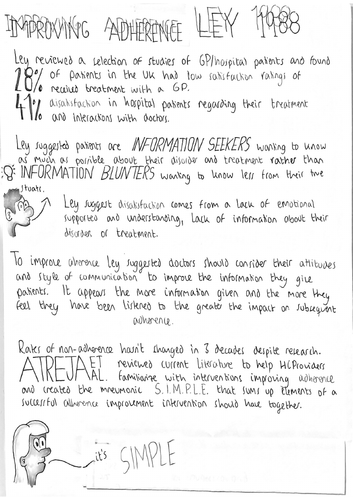 IMPROVING ADHERENCE LEY 1988
Ley reviewed a selection of studies of GP/hospital patients and found
28% of patients in the UK had low satisfaction ratings of
received treatment with a GP.
41% disatisfaction in hospital patients regarding their treatment
and interactions with doctors.
Ley suggested patients are INFORMATION SEEKERS wanting to know
as much as possible about their disorder and treatment rather than
INFORMATION BLUNTERS wanting to know less from their true
status.
Ley suggest disatisfaction comes from a lack of emotional
supported and understanding, lack of information about their
disorder or treatment.
To improve aherence ley suggested doctors should consider their attitudes
and style of communication to improve the information they give
patients. It appears the more information given and the more they
feel they have been listened to the greater the impact on subsequent
adherence.
Rates of non-adherence hasn't changed in 3 decades despite research.
ATREJA ET AL. reviewed current literature to help HCProviders
familiarise with interventions improving adherence
and created the mneumonic S.I.M.P.L.E. that sums up elements of a
successful adherence improvement intervention should have together.
it's SIMPLE